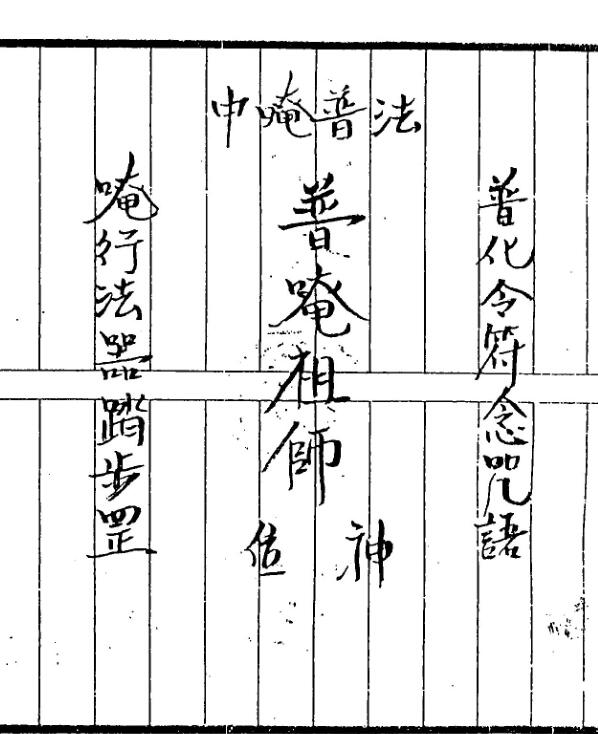 法普唵中
普化令符念咒語
普唵祖師
神位
唵行法器踏步罡